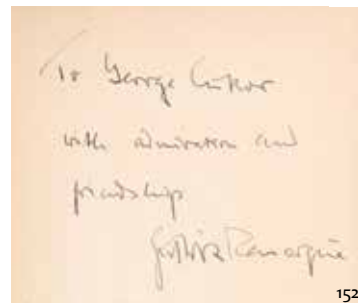 To George Cukor
with admiration and
friendship
Remarque
152